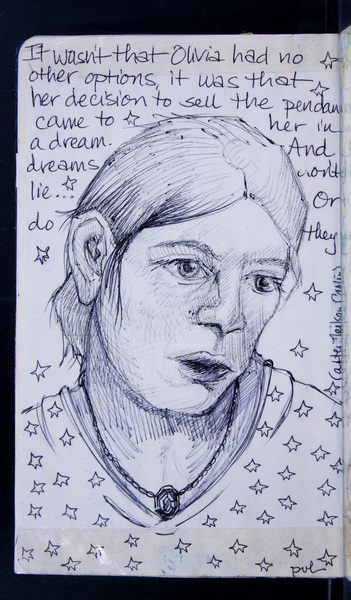 It wasn't that Olivia had no
other options, it was that
her decision to sell the pendant
came to her in
a dream. And
dreams won't
lie... Or
do they
pvl